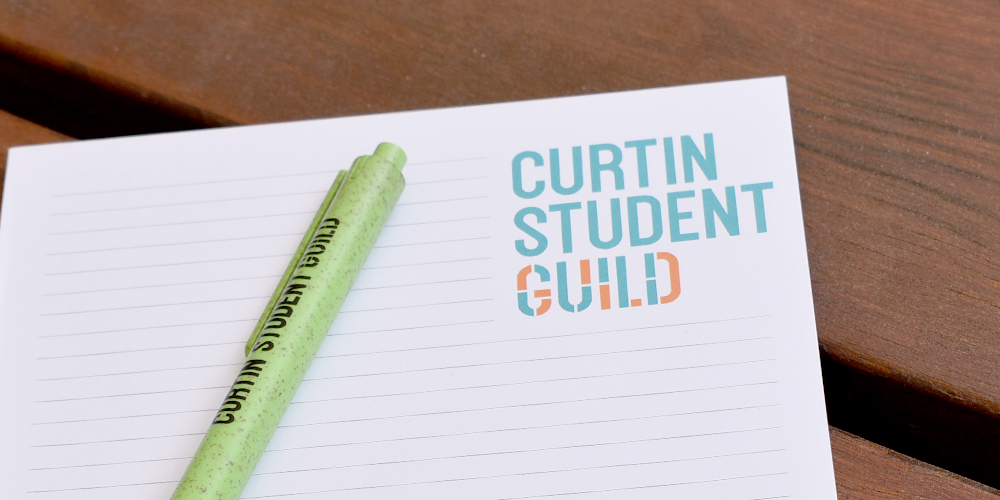 CURTIN
STUDENT
GUILD
CURTIN STUDENT GUILD